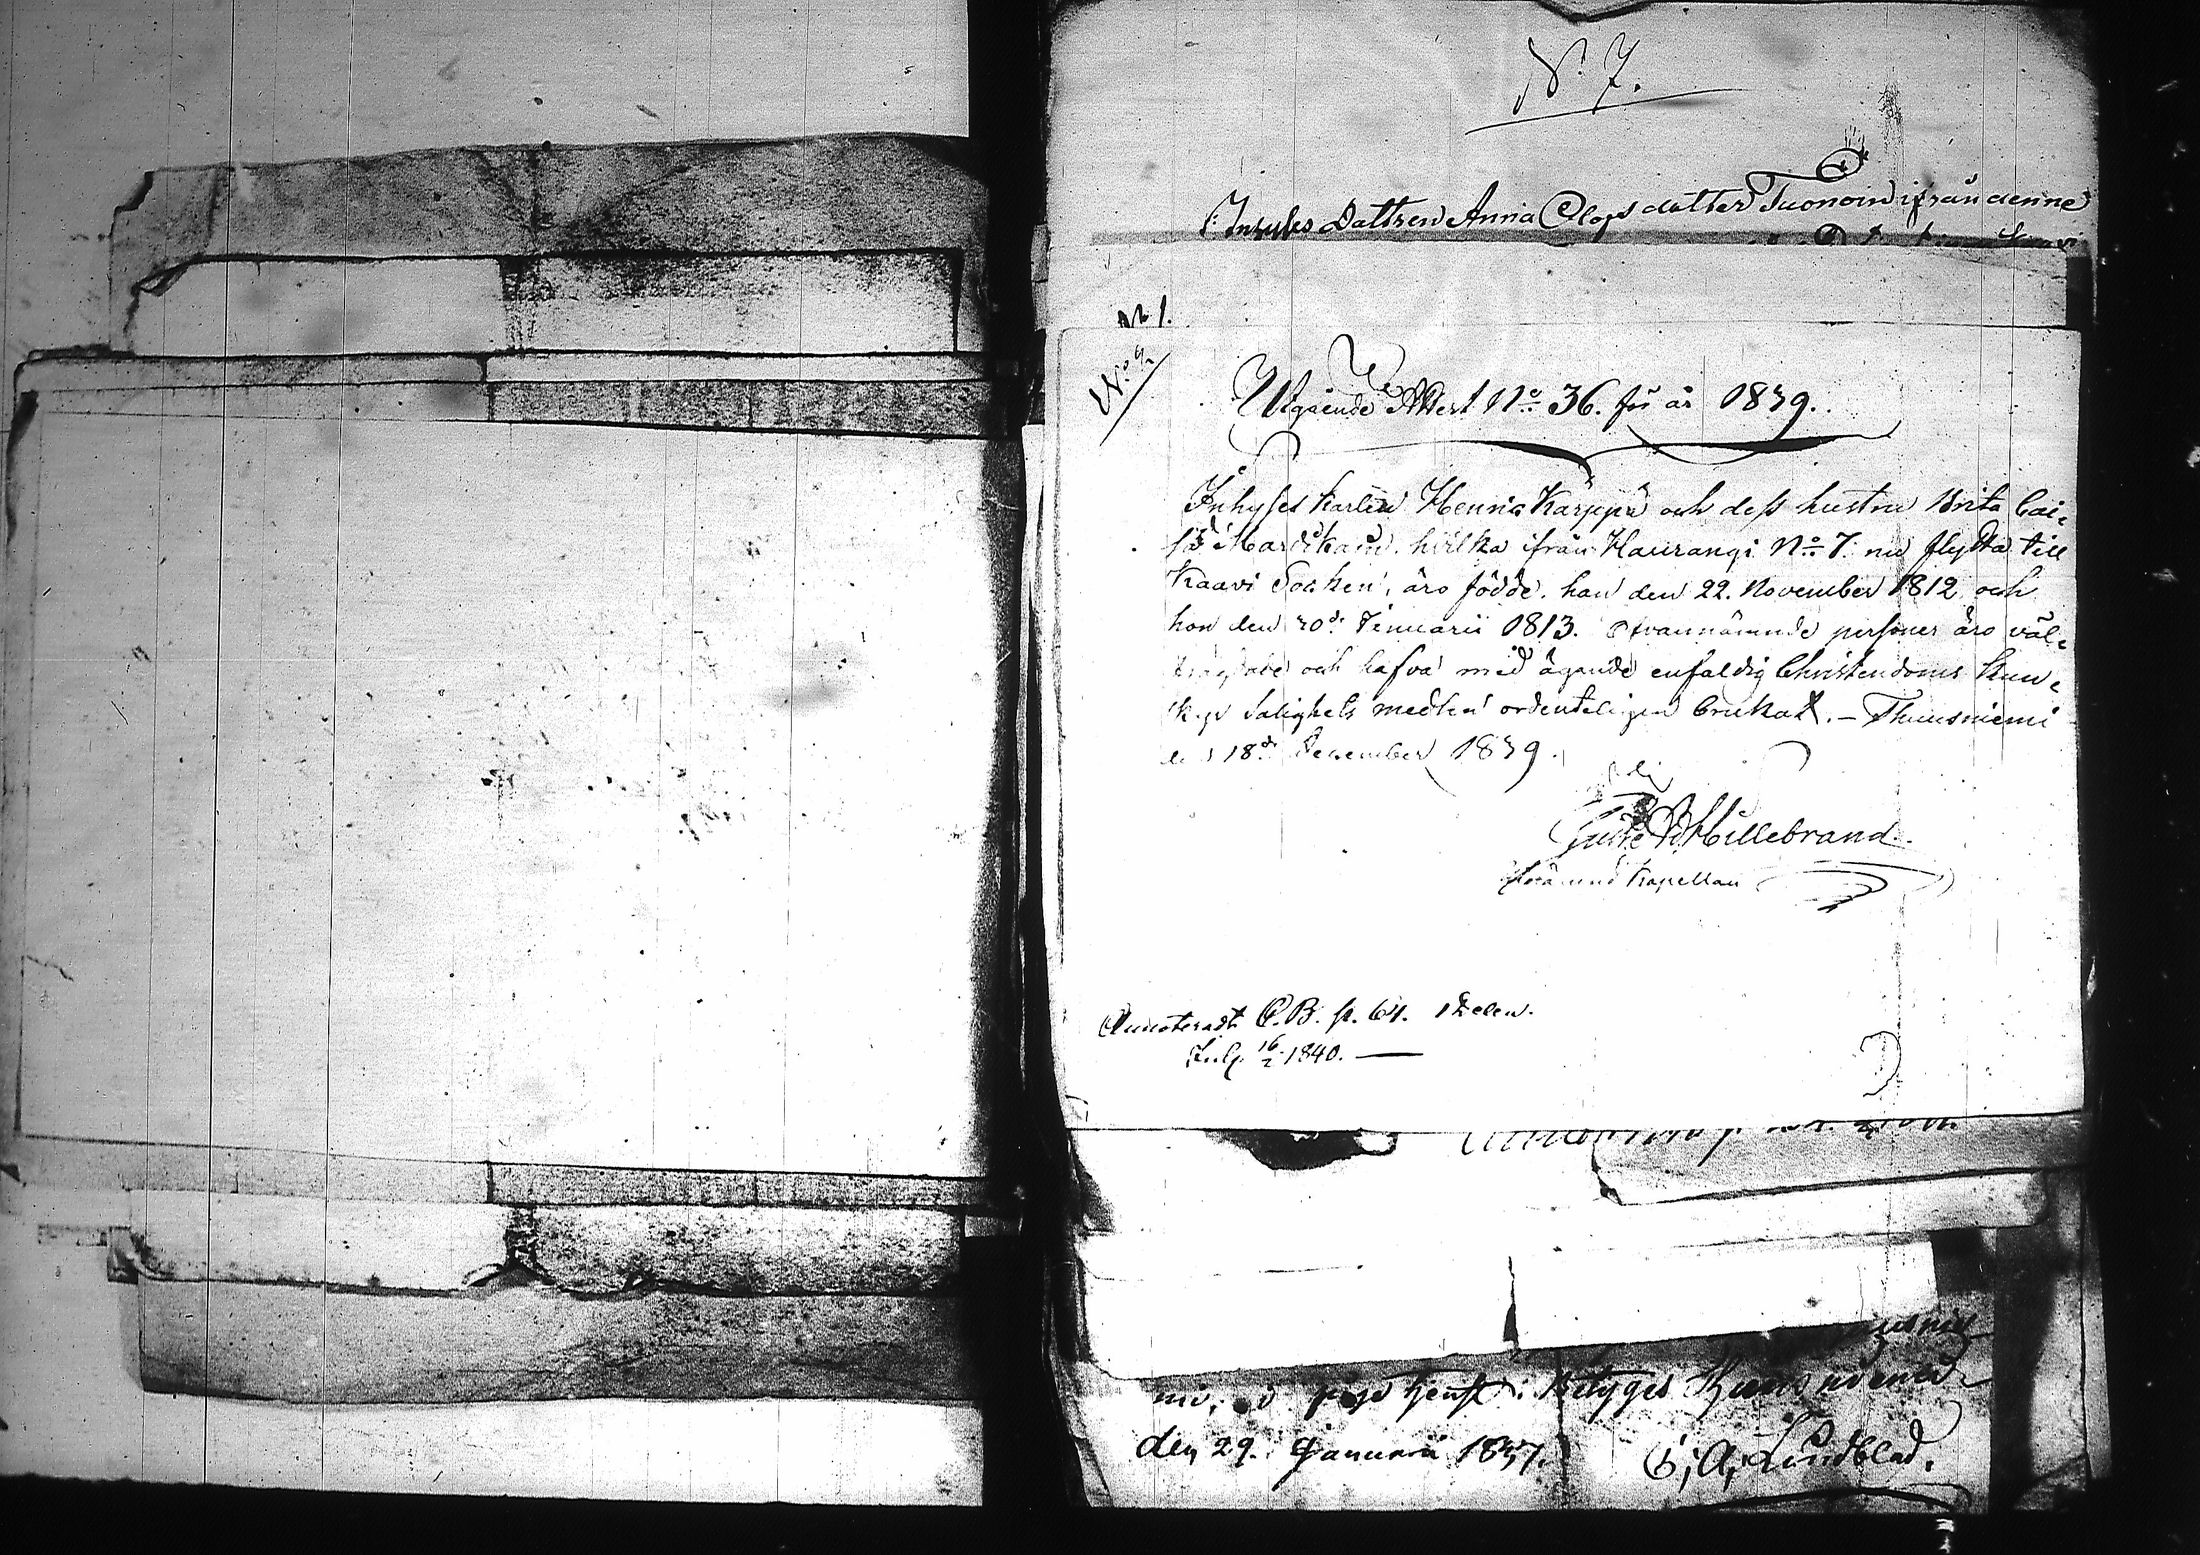 N:o 7.
Inhyses Dottren Anna Olofsdotter Tuonoin ifrån denne
№ 1.
N:o 9
Utgående Attest No 36. för år 1839.
Inhyses karlen Henric Kärppä och dess hustru Brita Cai-
sa Mardikain, hvilka ifrån Haurangi No 7. nu flytta till
Kaavi Socken, äro födde, han den 22. November 1812 och
hon den 20de Januarii 1813. Ofvannämnde personer äro väl-
frägdade och hafva med ägande enfaldig Christendoms kun-
skap Salighets medlen ordenteligen brukat. – Thuusniemi
den 18de December 1839.
Hillebrand.
Kapellan
Annoteradt C.B. p. 61.
16/2 1840. —
mi, betyges Thuusniemi
den 29. Januarii 1837.
G. A. Lindblad.